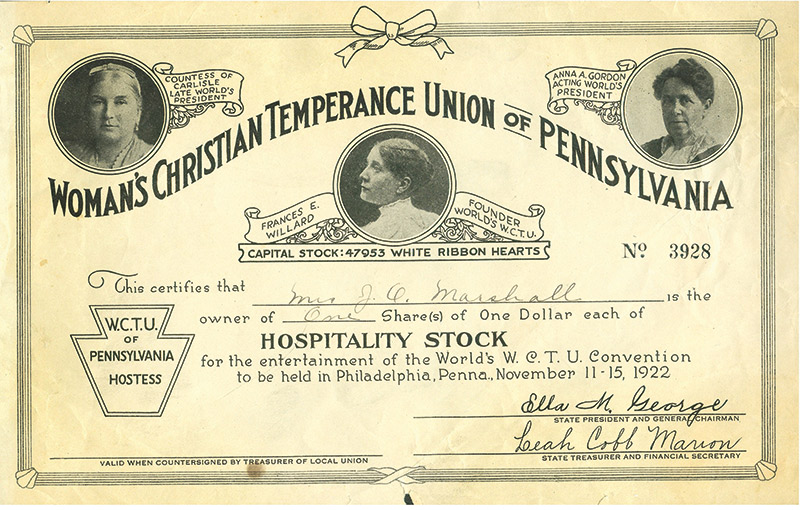 COUNTESS OF
CARLISLE
LATE WORLD'S
PRESIDENT
ANNA A. GORDON
ACTING WORLD'S
PRESIDENT
WOMAN'S CHRISTIAN TEMPERANCE UNION OF PENNSYLVANIA
FRANCES E.
WILLARD
FOUNDER
WORLD'S W.C.T.U.
CAPITAL STOCK: 47953 WHITE RIBBON HEARTS
No 3928
This certifies that Mrs J. O. Marshall is the
owner of One Share(s) of One Dollar each of
HOSPITALITY STOCK
for the entertainment of the World's W. C. T. U. Convention
to be held in Philadelphia, Penna., November 11-15, 1922
W.C.T.U.
OF
PENNSYLVANIA
HOSTESS
Ella M. George
STATE PRESIDENT AND GENERAL CHAIRMAN
Leah Cobb Marion
STATE TREASURER AND FINANCIAL SECRETARY
VALID WHEN COUNTERSIGNED BY TREASURER OF LOCAL UNION